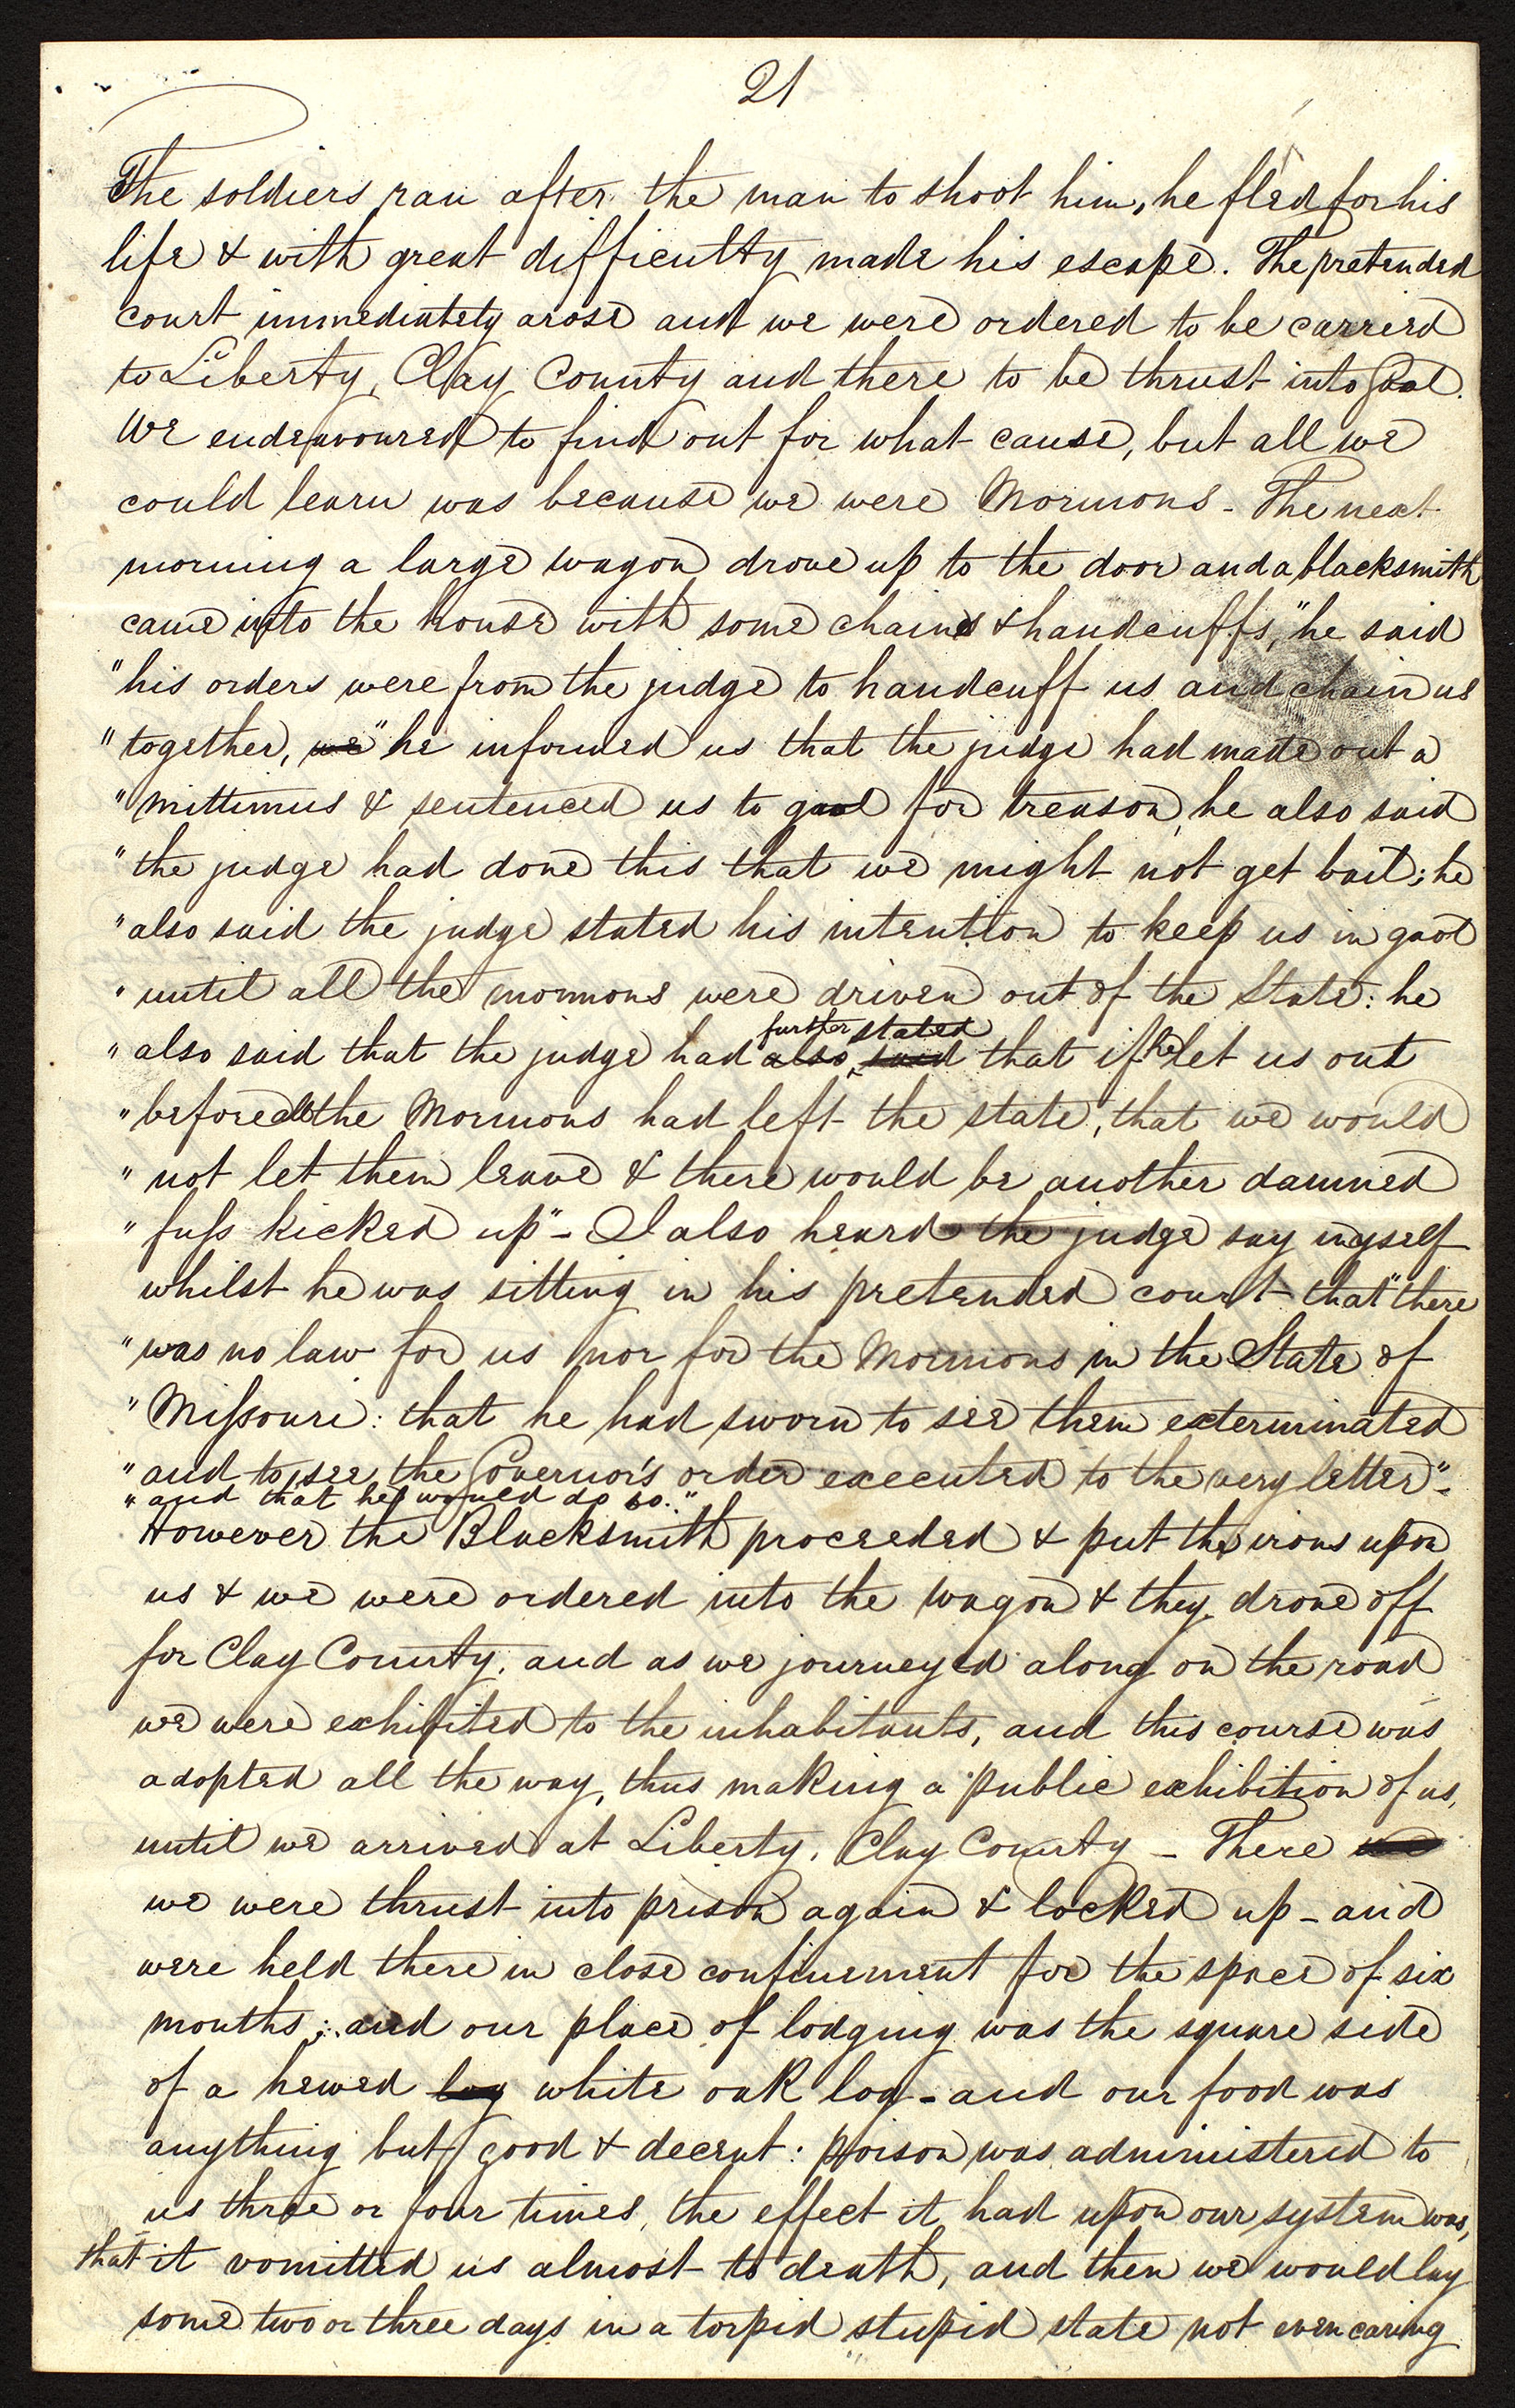 21
The soldiers ran after the man to shoot him, he fled for his
life & with great difficulty made his escape. The pretended
court immediately arose and we were ordered to be carried
to Liberty, Clay County and there to be thrust into Gaol.
We endeavoured to find out for what cause, but all we
could learn was because we were Mormons - The next
morning a large wagon drove up to the door and a blacksmith
came into the house with some chains & handcuffs, "he said
"his orders were from the judge to handcuff us and chain us
"together, we" he informed us that the judge had made out a
"mittimus & sentenced us to gaol for treason, he also said
"the judge had done this that we might not get bail; he
"also said the judge stated his intention to keep us in gaol
"until all the mormons were driven out of the State: he
further stated
"also said that the judge had also said that if he let us out
"before all the Mormons had left the state, that we would
"not let them leave & there would be another damned
"fuss kicked up" - I also heard the judge say myself
whilst he was sitting in his pretended court that "there
"was no law for us nor for the Mormons in the State of
"Missouri: that he had sworn to see them exterminated
"and to see the Governor's order executed to the very letter" -
"and that he would do so."
However the Blacksmith proceeded & put the irons upon
us & we were ordered into the wagon & they drove off
for Clay County, and as we journeyed along on the road
we were exhibited to the inhabitants, and this course was
adopted all the way, thus making a public exhibition of us,
until we arrived at Liberty, Clay County - There
we were thrust into prison again & locked up - and
were held there in close confinement for the space of six
months; and our place of lodging was the square side
of a hewed log white oak log - and our food was
anything but good & decent: poison was administered to
us three or four times, the effect it had upon our system was,
that it vomitted us almost to death, and then we would lay
some two or three days in a torpid stupid state not even caring